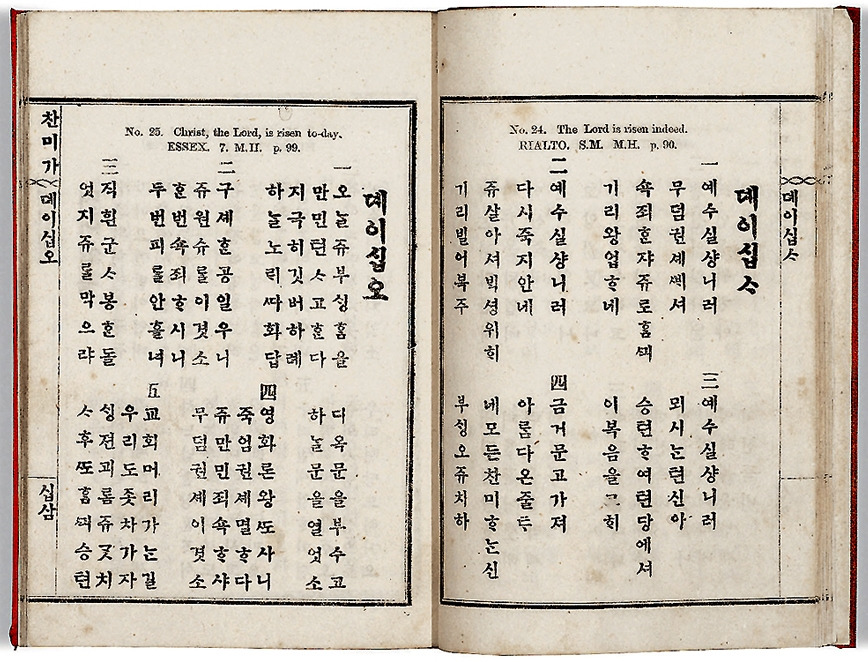 데이십ᄉᆞ
No. 24. The Lord is risen indeed.
RIALTO. S.M. M.H. p. 90.
데이십ᄉᆞ
一 예수실샹니러
무덤권셰ᄭᆡ셔
쇽죄ᄒᆞᆫ쟈쥬로홈ᄭᅴ
기리왕업ᄒᆞ네
二 예수실샹니러
다시죽지안네
쥬살아셔빅셩위ᄒᆡ
기리빌어복주
三 예수실샹니러
뫼시ᄂᆞᆫ텬신아
승텬ᄒᆞ여텬당에셔
이복음을
四 금거문고가져
아름다온줄ᄐᆞ
네모든찬미ᄒᆞᄂᆞᆫ신
부싱오쥬치하
No. 25. Christ, the Lord, is risen to-day.
ESSEX. 7. M.H. p. 99.
데이십오
一 오ᄂᆞᆯ쥬부싱홈을
만민텬ᄉᆞ고ᄒᆞᆫ다
지극히깃버하례
하ᄂᆞᆯ노리ᄯᅡ화답
二 구셰ᄒᆞᆫ공일우니
쥬원슈ᄅᆞᆯ이긧소
ᄒᆞᆫ번쇽죄ᄒᆞ시니
두번피ᄅᆞᆯ안흘녀
三 직흰군ᄉᆞ봉ᄒᆞᆫ돌
엇지쥬ᄅᆞᆯ막으랴
디옥문을부수고
하ᄂᆞᆯ문을열엇소
四 영화론왕ᄯᅩ사니
죽엄권셰멸ᄒᆞ다
쥬만민죄쇽ᄒᆞ샤
무덤권셰이긧소
五 교회머리가ᄂᆞᆫ길
우리도좃차가자
싱젼괴롬쥬ᄀᆞᆺ치
ᄉᆞ후ᄯᅩ홈ᄭᅴ승텬
찬미가
데이십오
십삼